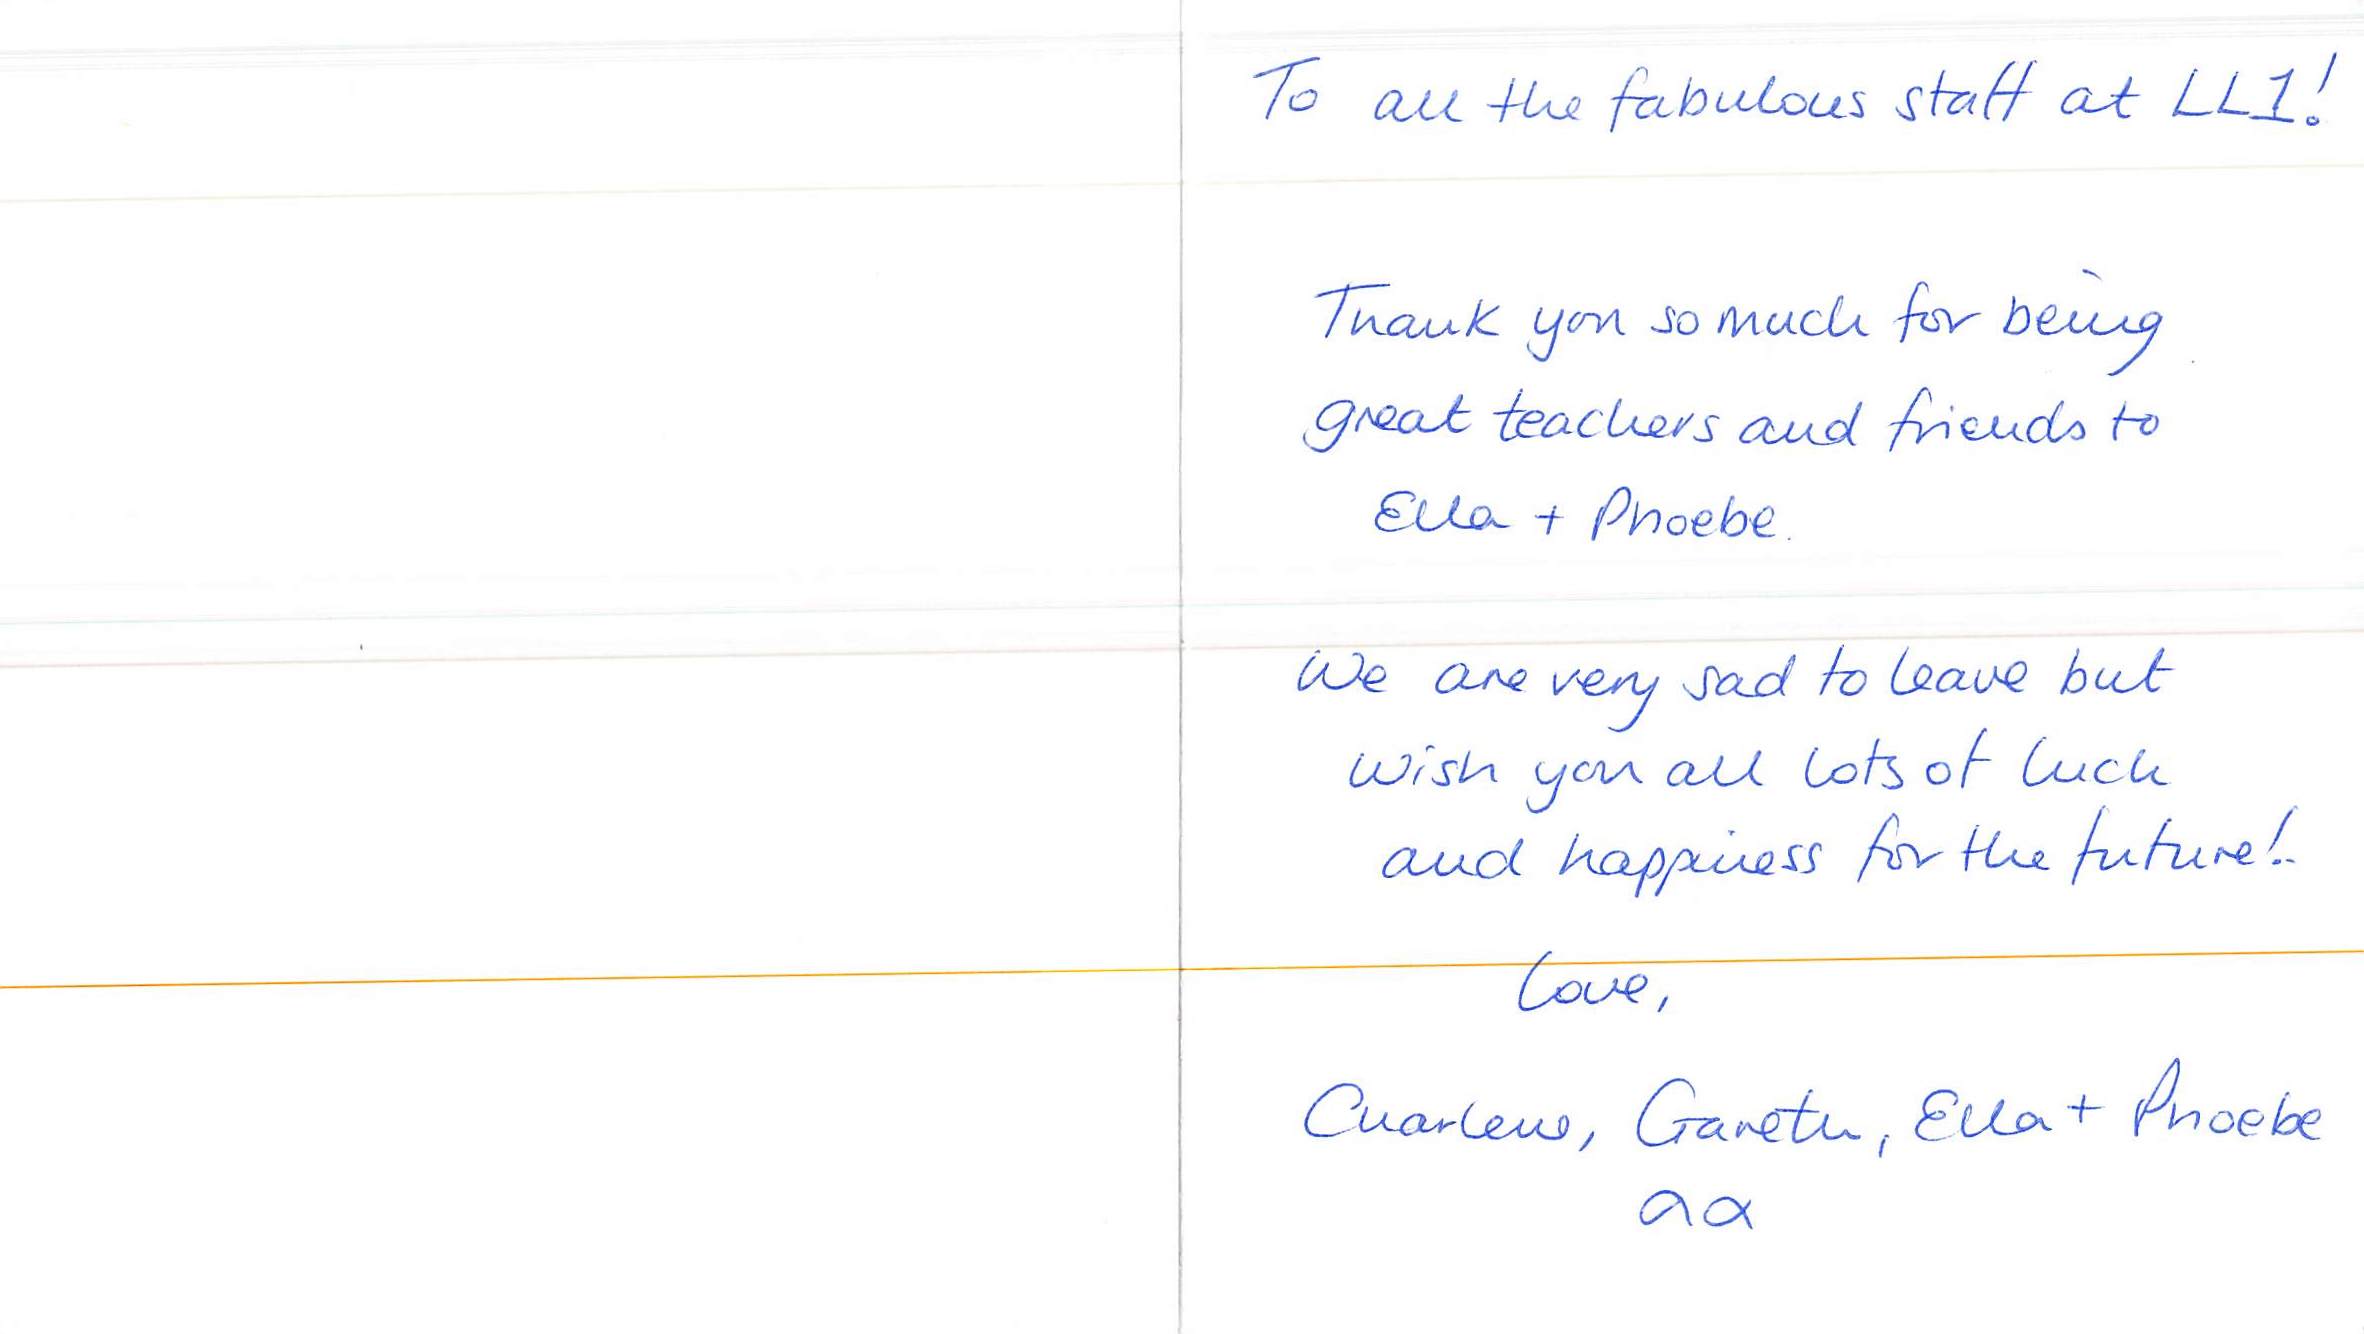 To all the fabulous staff at LL1!
Thank you so much for being
great teachers and friends to
Ella + Phoebe.
We are very sad to leave but
wish you all lots of luck
and happiness for the future!
Love,
Charlene, Gareth, Ella + Phoebe
xx